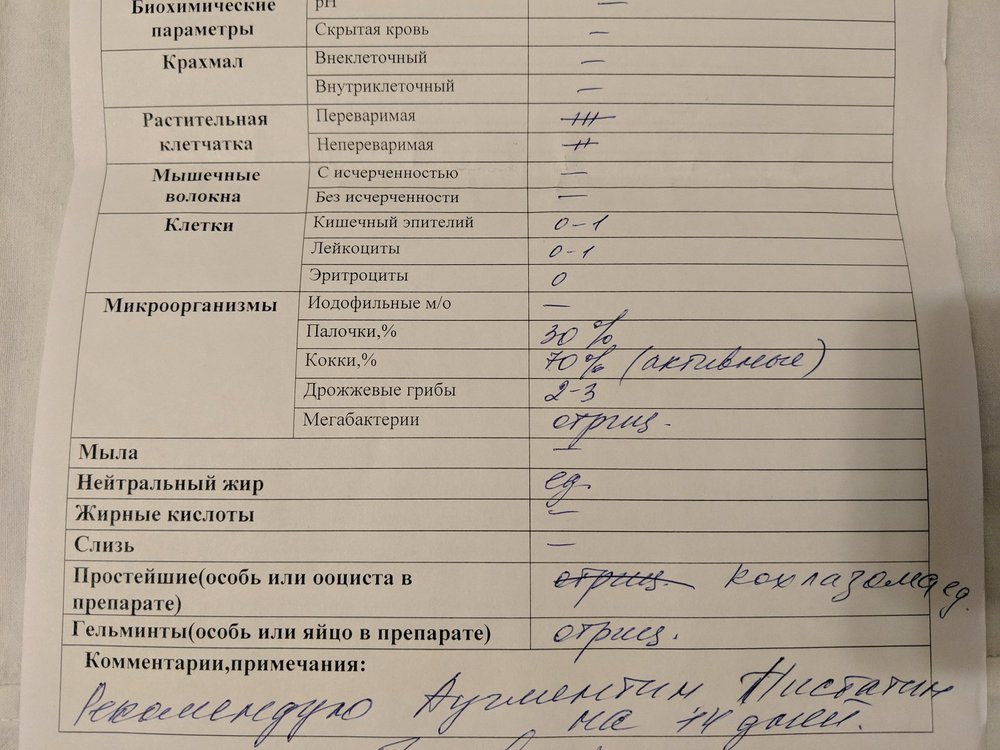 Биохимические параметры pH —
Скрытая кровь —
Крахмал Внеклеточный —
Внутриклеточный —
Растительная клетчатка Переваримая +++
Непереваримая ++
Мышечные волокна С исчерченностью —
Без исчерченности —
Клетки Кишечный эпителий 0-1
Лейкоциты 0-1
Эритроциты 0
Микроорганизмы Иодофильные м/о —
Палочки,% 30%
Кокки,% 70% (активные)
Дрожжевые грибы 2-3
Мегабактерии отриц.
Мыла —
Нейтральный жир ед.
Жирные кислоты —
Слизь —
Простейшие(особь или ооциста в отриц. кохлазома ед.
препарате)
Гельминты(особь или яйцо в препарате) отриц.
Комментарии,примечания:
Рекомендую Аугментин Нистатин
на 14 дней.